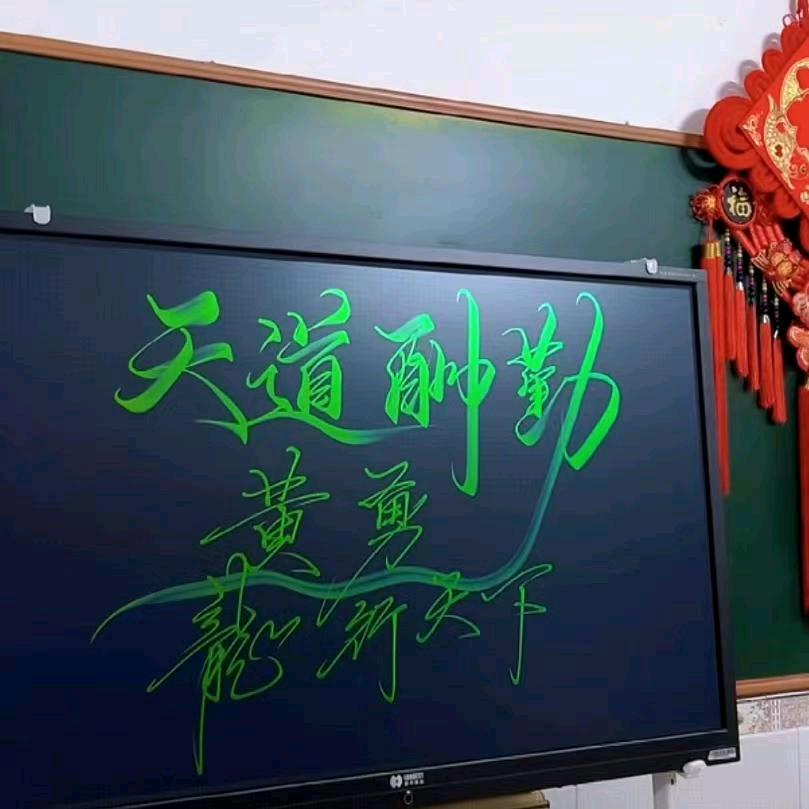 天道酬勤
黄勇
龍行天下
福